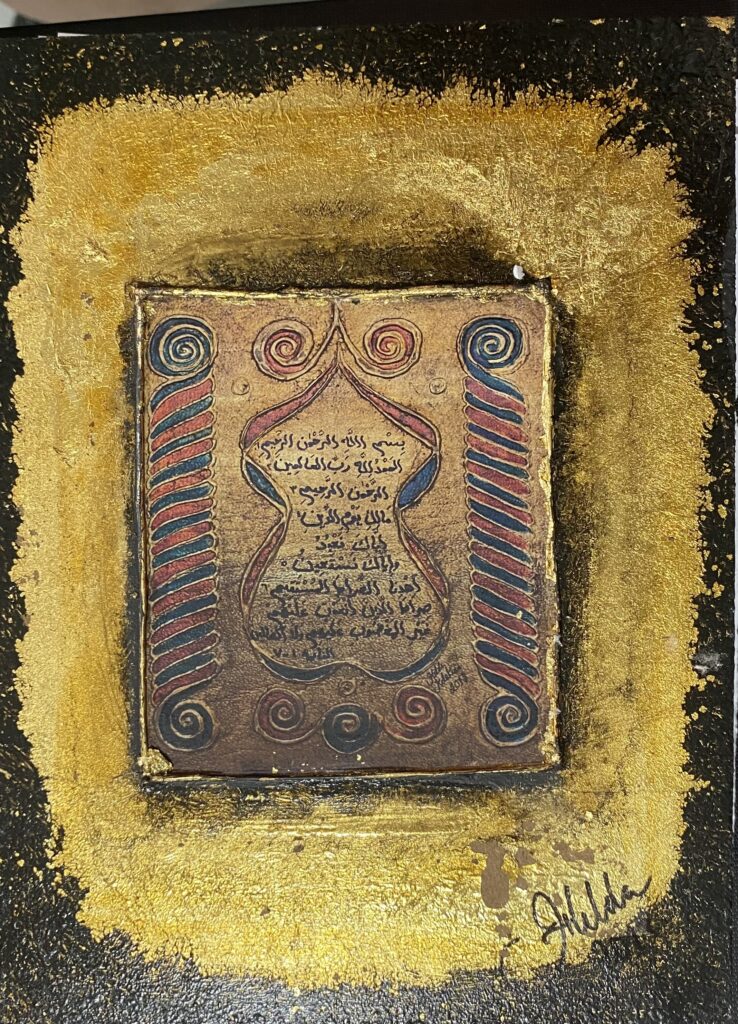 بِسْمِ اللَّه الرَّحْمٰن الرحيم
الحَمْدُ للَّه رَبّ العَالمين ٢
الرَّحْمٰن الرَّحيم ٣
مالك يَوْم الدِّين ٤
إيّاك نَعْبُدُ
وإيّاك نَسْتَعين ٥
اهْدِنا الصِّراط المُسْتَقيم ٦
صراط الذين أنْعَمْت عليهم
غير المغضوب عليهم ولا الضالين
١-٧
Hilda